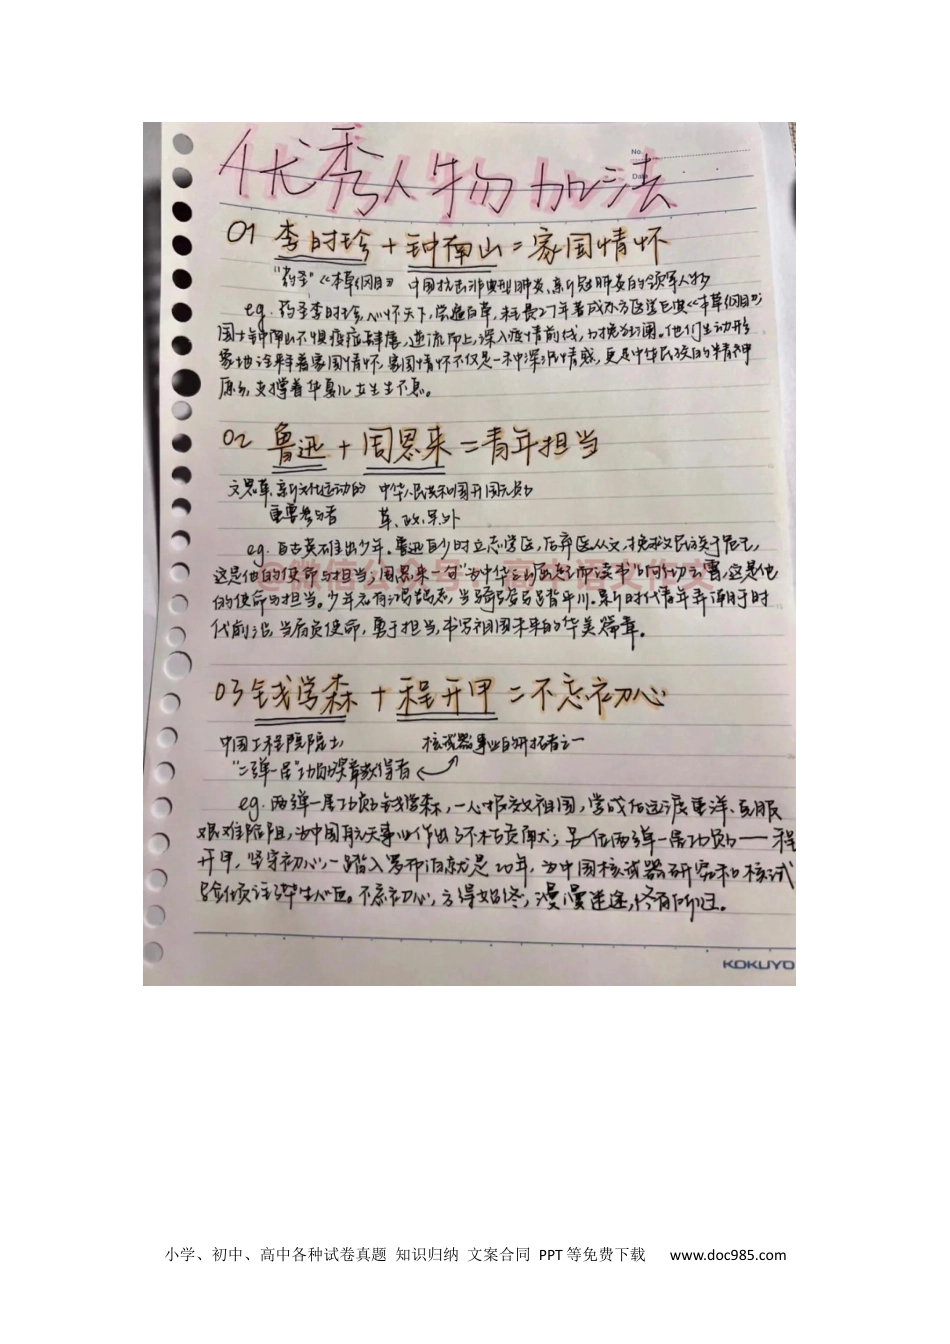 优秀人物加法
No.
Date
01 李时珍+钟南山=家国情怀
"药圣"《本草纲目》 中国抗击非典型肺炎、新冠肺炎的领军人物
eg. 药圣李时珍,心怀天下,尝遍百草,耗長27年著成东方医学巨典《本草纲目》;
国士钟南山不惧疫症肆虐,逆流而上,深入疫情前线,力挽狂澜。他们生动形
象地诠释着家国情怀,家国情怀不仅是一种深沉情感,更是中华民族的精神
原乡,支撑着华夏儿女生生不息。
02 鲁迅+周恩来=青年担当
文思革、新文化运动的 中华人民共和国开国元勋
重要参与者 革、政、军、外
eg. 自古英雄出少年。鲁迅自少时立志学医,后弃医从文,拯救民族于危亡,
这是他的使命与担当;周恩来一句"为中华之崛起而读书"响彻云霄,这是他
的使命与担当。少年志有鸿鹄志,当骑骏马踏平川。新时代青年弄潮于时
代前沿,当肩负使命,勇于担当,书写祖国未来的华美篇章。
@微信公众号:高中语文作文
03 钱学森+程开甲=不忘初心
中国工程院院士, 核武器事业的开拓者之一
"二弹一星"功勋奖章获得者
eg. 两弹一星功勋钱学森,一心报效祖国,学成后远渡重洋、克服
艰难险阻,为中国航天事业作出了不朽贡献;另一位两弹一星功勋——程
开甲,坚守初心,一踏入罗布泊就是20年,为中国核武器研究和核试
验倾注毕生心血。不忘初心,方得始终,漫漫逆途,终有所归。
KOKUYO
小学、初中、高中各种试卷真题 知识归纳 文案合同 PPT等免费下载 www.doc985.com